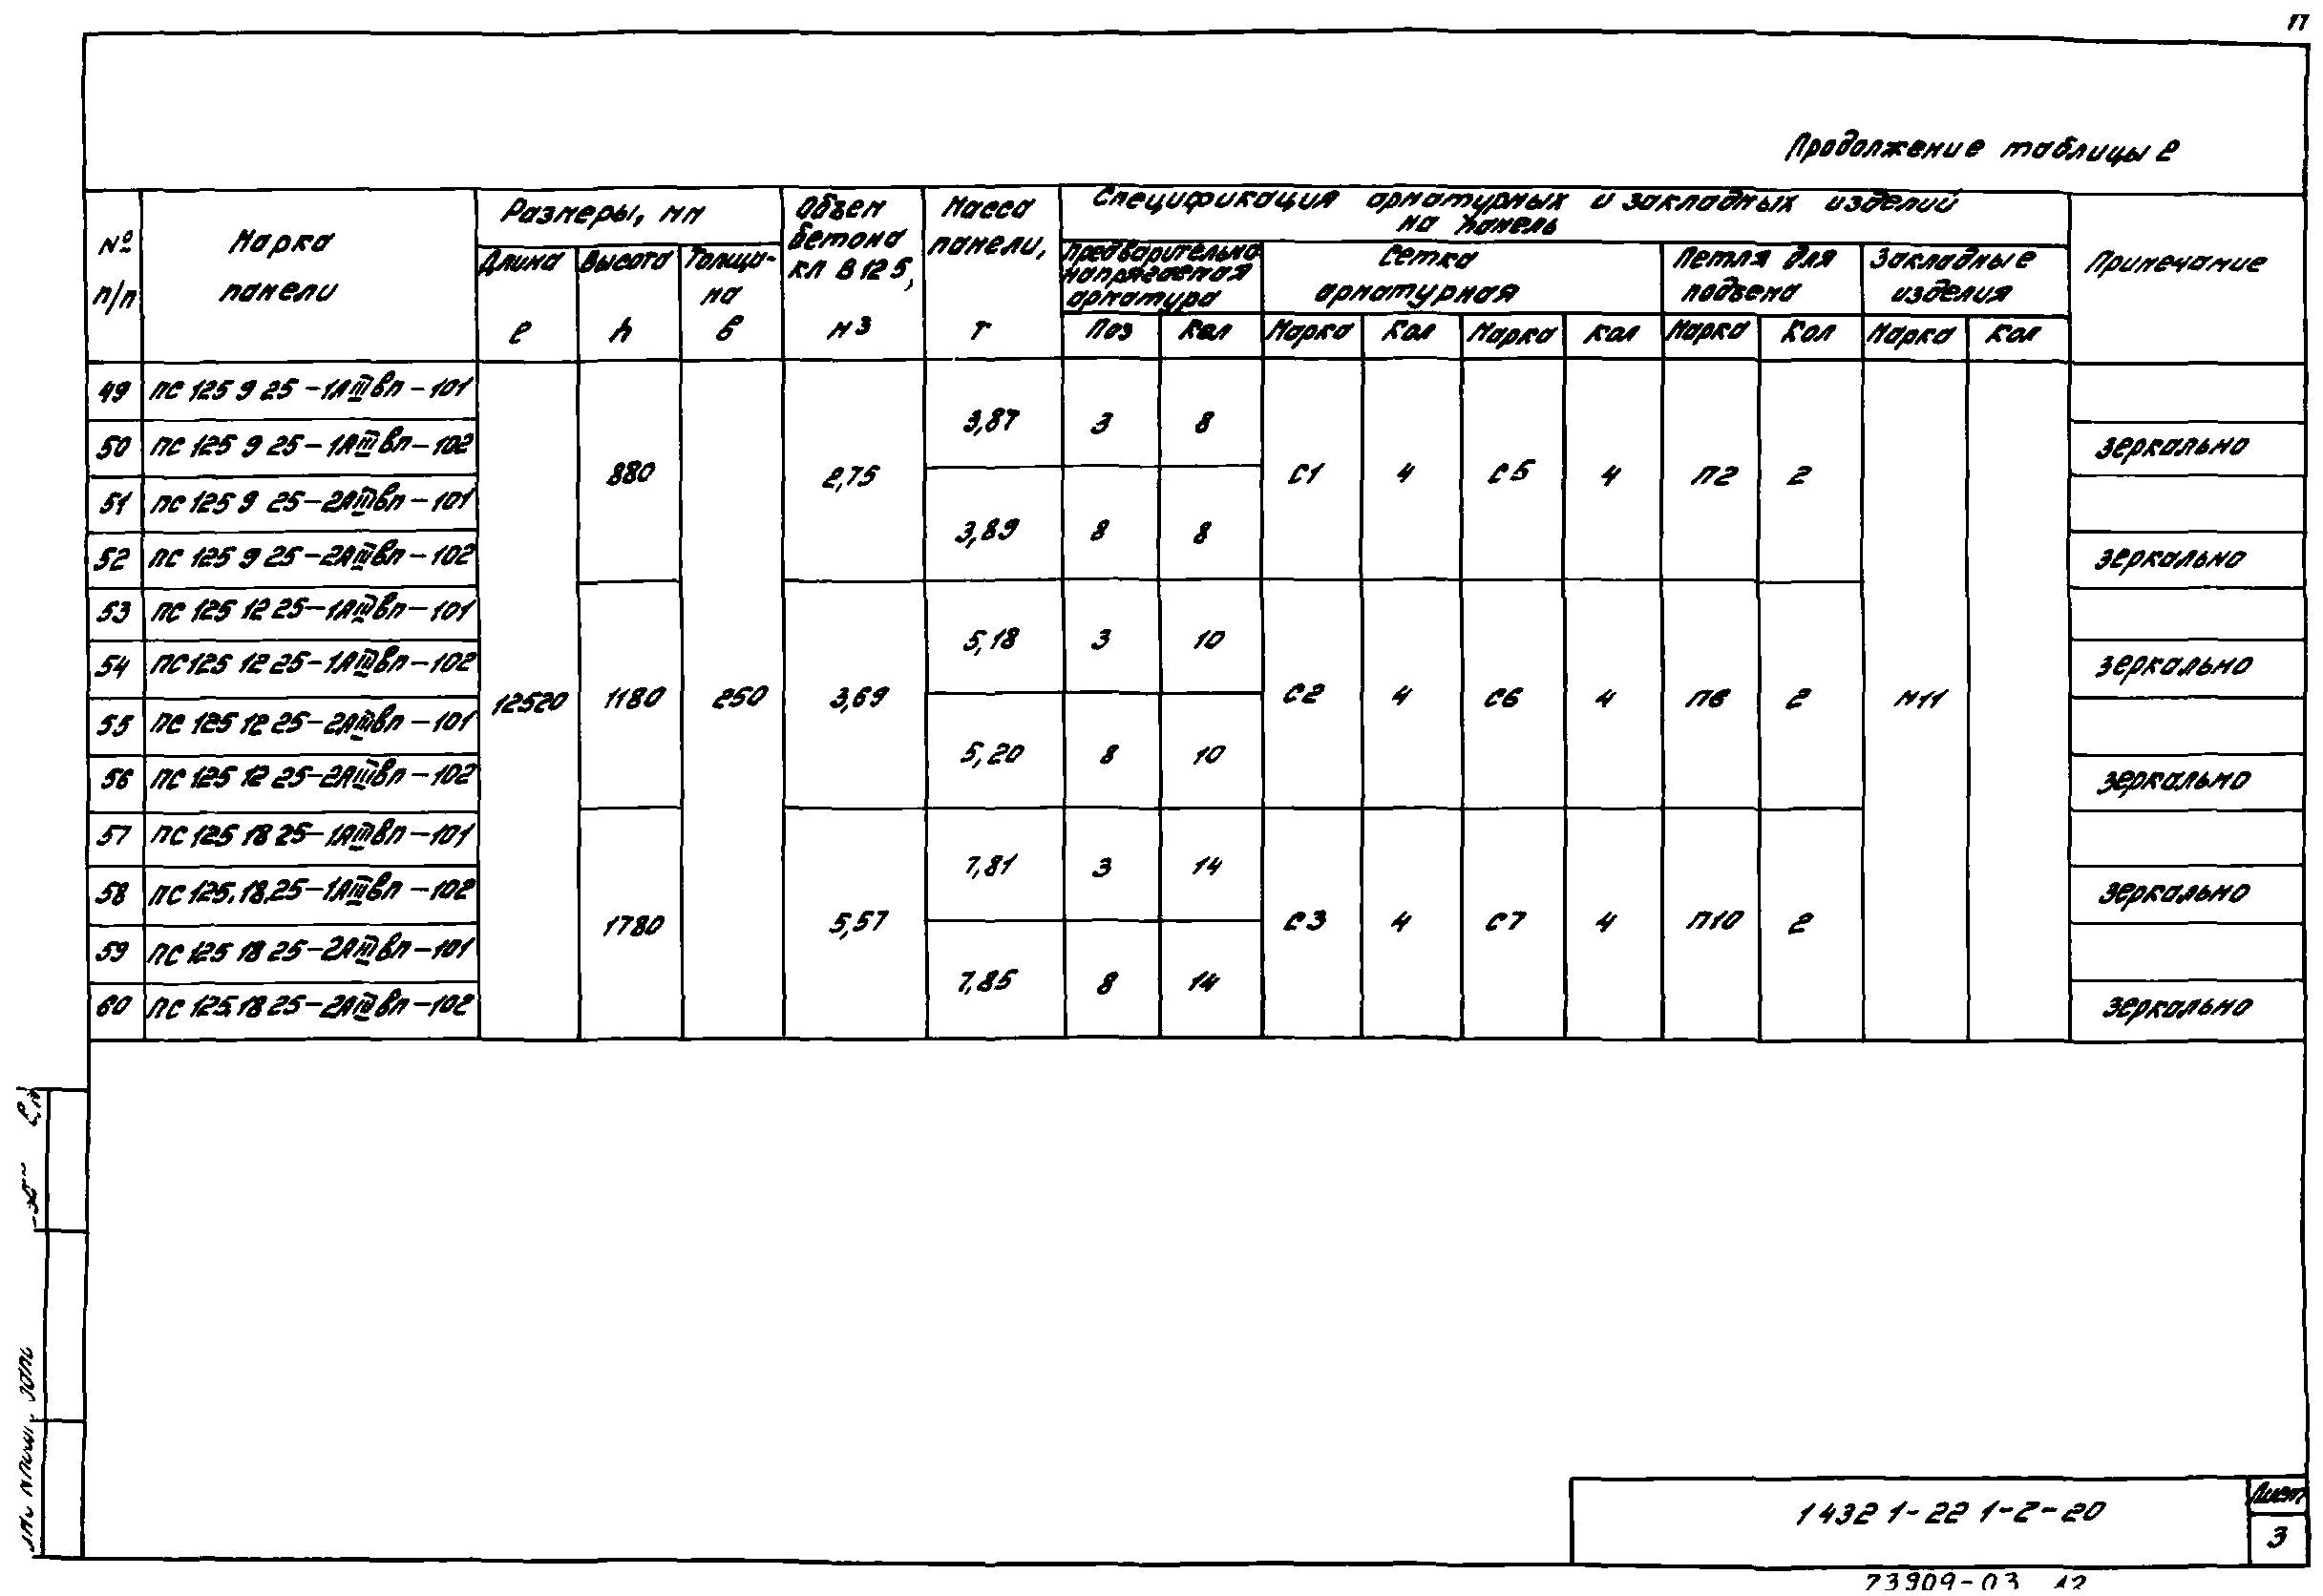 11
Продолжение таблицы 2
№ п/п
Марка панели
Размеры, мм
Длина l
Высота h
Толщи-на b
Объем бетона кл В 12 5, м3
Масса панели, т
Спецификация арматурных и закладных изделий на панель
Предварительно напрягаемая арматура
Сетка арматурная
Петля для подъема
Закладные изделия
Примечание
Поз Кол Марка Кол Марка Кол Марка Кол Марка Кол
49 ПС 125 9 25-1АIIIвп-101
50 ПС 125 9 25-1АIIIвп-102 зеркально
51 ПС 125 9 25-2АIIIвп-101
52 ПС 125 9 25-2АIIIвп-102 зеркально
880 2,75 С1 4 С5 4 П2 2
3,87 3 8
3,89 8 8
53 ПС 125 12 25-1АIIIвп-101
54 ПС 125 12 25-1АIIIвп-102 зеркально
55 ПС 125 12 25-2АIIIвп-101
56 ПС 125 12 25-2АIIIвп-102 зеркально
12520 1180 250 3,69 С2 4 С6 4 П6 2 М11
5,18 3 10
5,20 8 10
57 ПС 125 18 25-1АIIIвп-101
58 ПС 125.18.25-1АIIIвп-102 зеркально
59 ПС 125 18 25-2АIIIвп-101
60 ПС 125.18 25-2АIIIвп-102 зеркально
1780 5,57 С3 4 С7 4 П10 2
7,81 3 14
7,85 8 14
1 432 1-22 1-2-20
Лист
3
23909-03 12